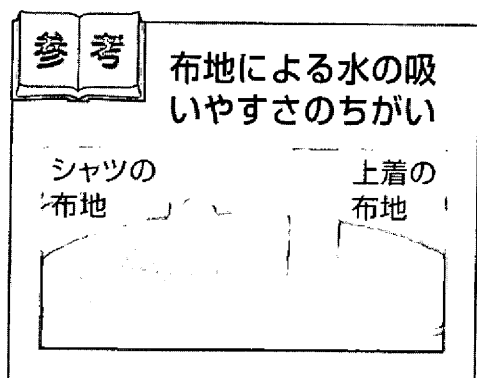 参考
布地による水の吸
いやすさのちがい
シャツの
布地
上着の
布地